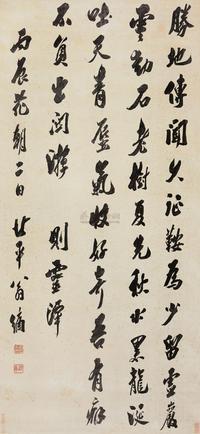 勝地傳聞久征鞍為少留靈巖
雲動石老樹夏先秋水黑龍涎
吐天青蜃氣收好奇吾有癖
不負出關游 則靈潭
丙辰花朝二日 北平翁